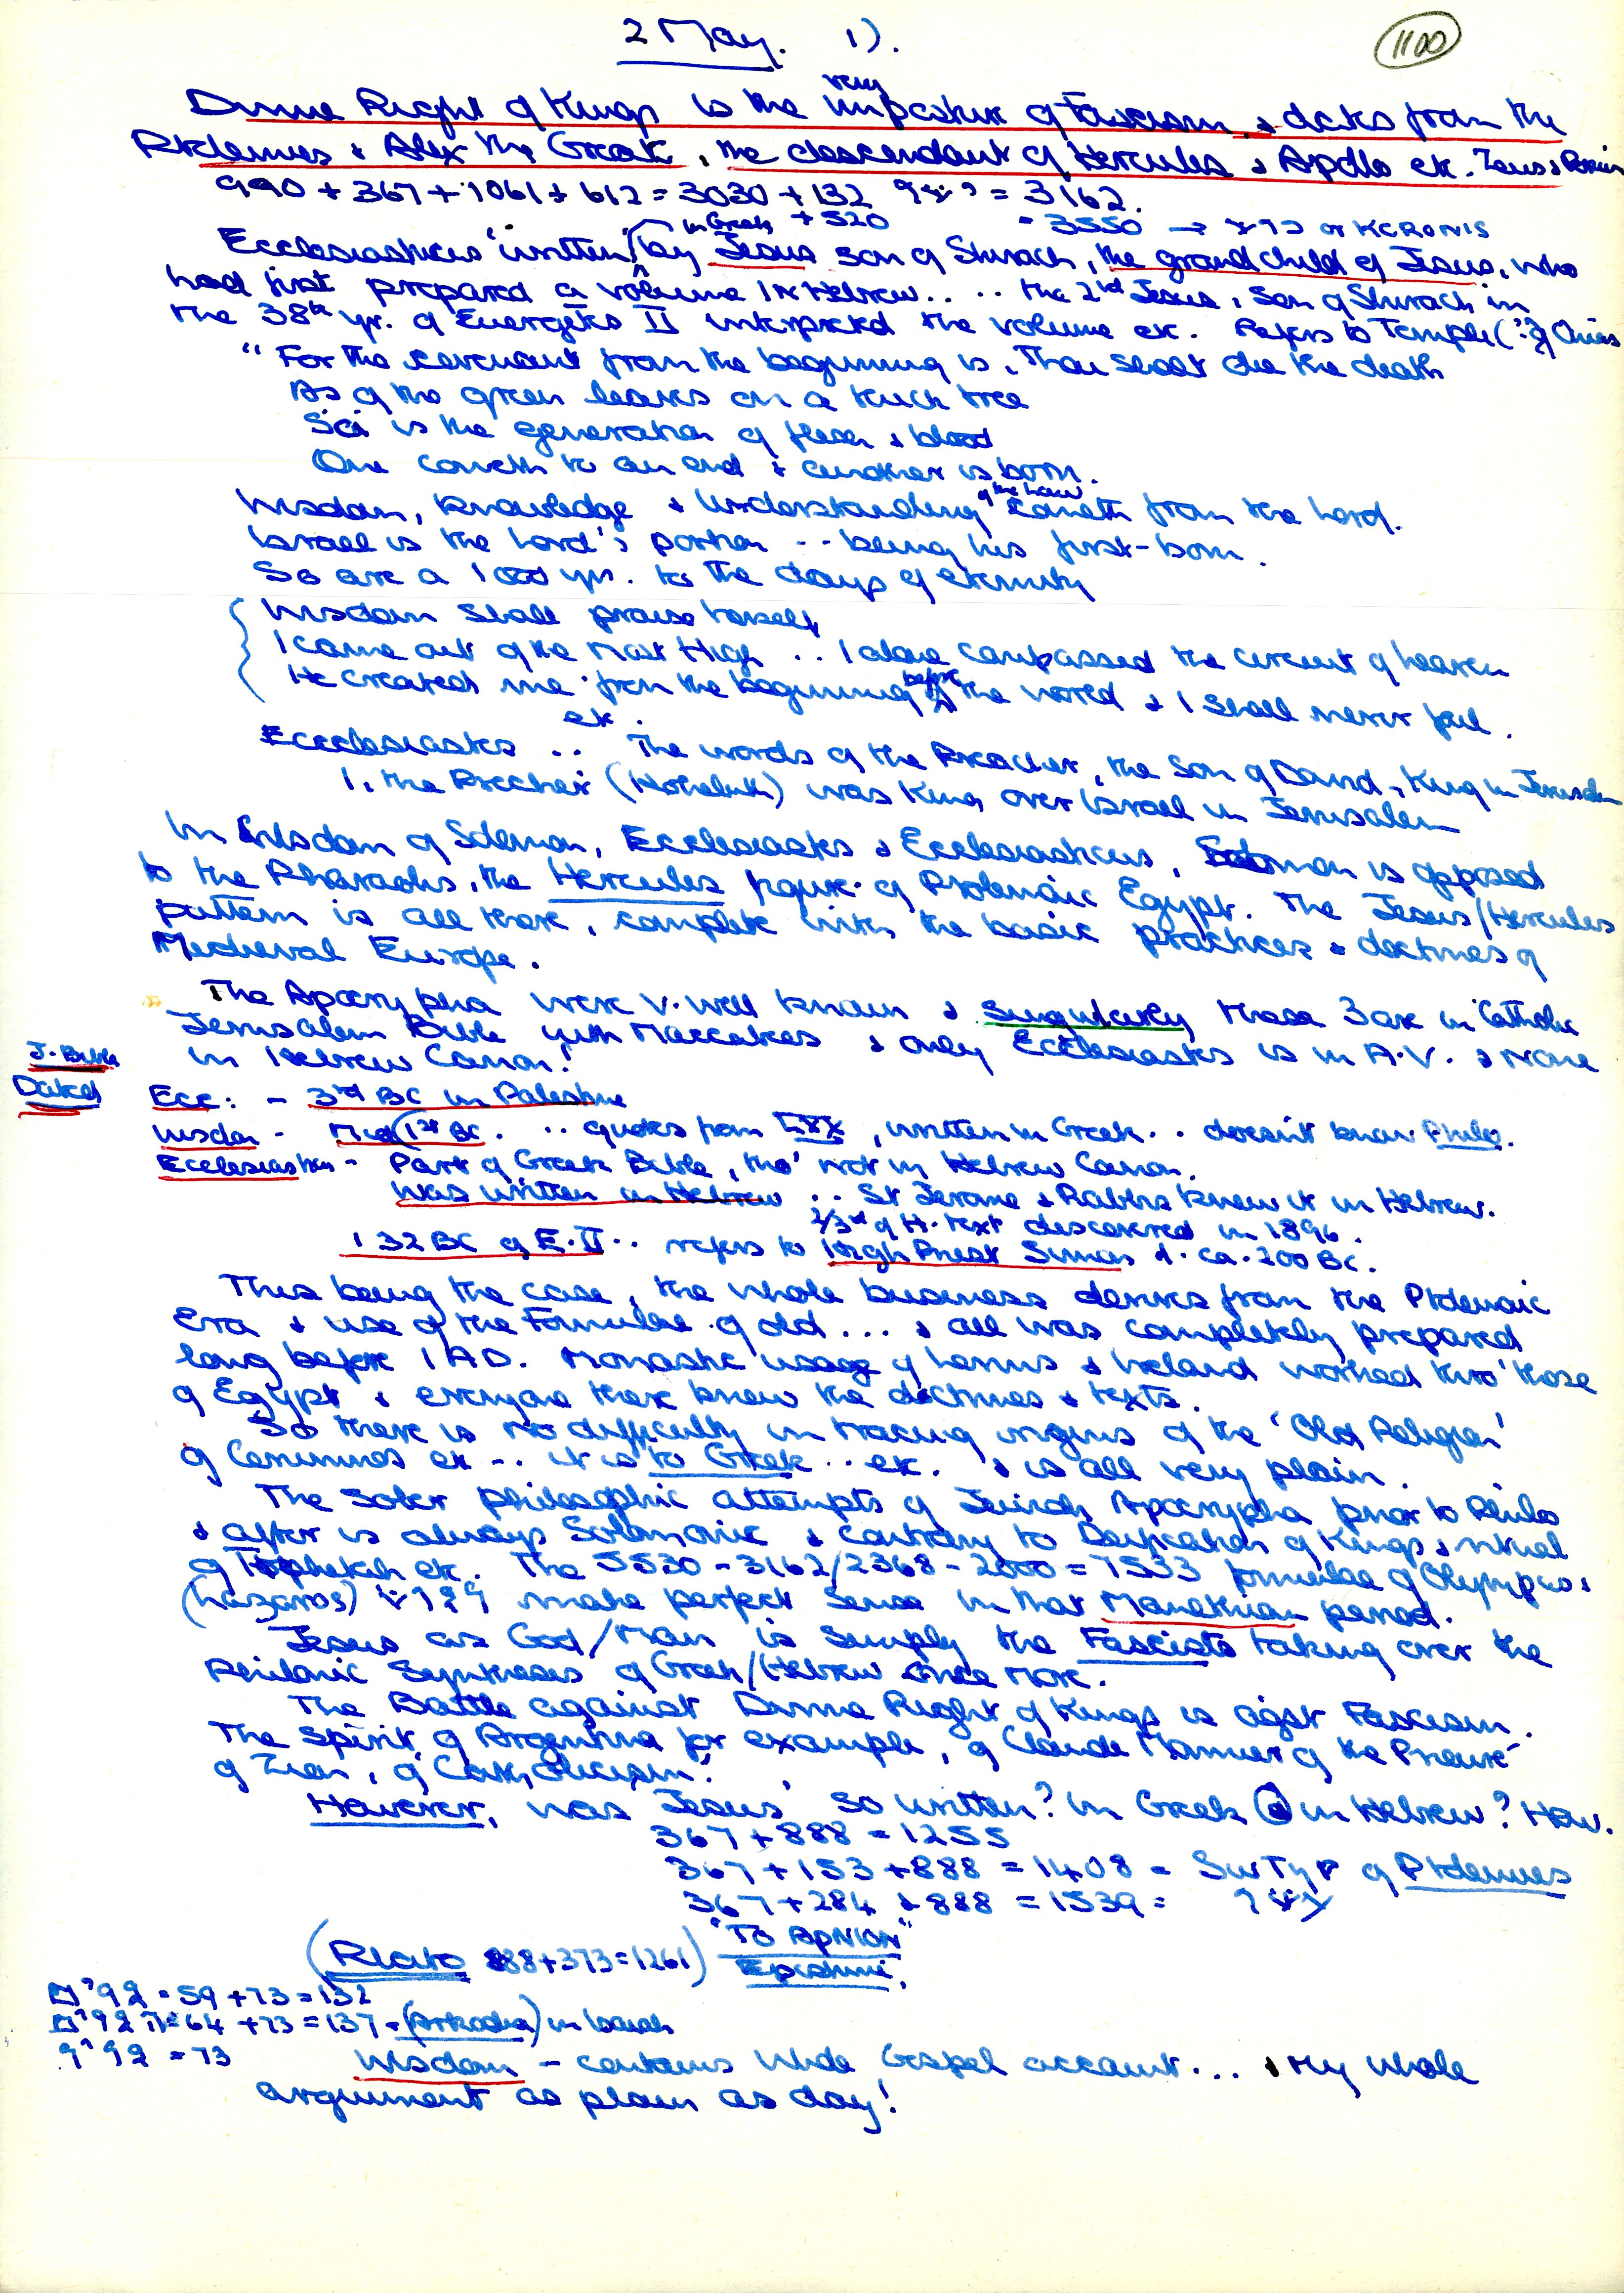 2 May. 1).
1100
very
Divine Right of Kings is the imposture of Fascism, & dates from the
Ptolemies & Alex the Great, the descendant of Hercules & Apollo etc. Zeus &
990 + 367 + 1061 + 612 = 3030 + 132 = 3162.
+ 520 = 3550 → or KERONIS
in Greek
Ecclesiasticus 'written' by Jesus son of Shirach, the grandchild of Jesus, who
had first prepared a volume in Hebrew.. .. the 2nd Jesus, Son of Shirach in
the 38th yr. of Euergetes II interpreted the volume etc. Refers to Temple (? of Onias
"For the covenant from the beginning is, Thou shalt die the death
As of the green leaves on a thick tree
So is the generation of flesh & blood
One cometh to an end & another is born.
of the Law
Wisdom, knowledge & Understanding cometh from the Lord.
Israel is the Lord's portion -- being his first-born.
So are a 1000 yrs. to the days of eternity
Wisdom shall praise herself
I came out of the Most High .. I alone compassed the circuit of heaven
before
He created me from the beginning the world & I shall never fail.
etc.
Ecclesiastes .. The words of the Preacher, the Son of David, King in Jerusalem
I, the Preacher (Koheleth) was King over Israel in Jerusalem
In Wisdom of Solomon, Ecclesiastes & Ecclesiasticus, Solomon is opposed
to the Pharaohs, the Hercules figure of Ptolemaic Egypt. The Jesus/Hercules
pattern is all there, complete with the basic practices & doctrines of
Medieval Europe.
The Apocrypha were v. well known & singularly these 3 are in Catholic
Jerusalem Bible with Maccabees & only Ecclesiastes is in A.V. & None
in Hebrew Canon!
J. Bible
Dates
Ecc: - 3rd BC in Palestine
Wisdom - Mid 1st BC. .. quotes from LXX, written in Greek.. doesn't know Philo.
Ecclesiasticus - Part of Greek Bible, tho' not in Hebrew Canon.
Was written in Hebrew .. St Jerome & Rabbis knew it in Hebrew.
2/3rd of H. text discovered in 1896.
132 BC of E.II.. refers to High Priest Simon d. ca. 200 BC.
This being the case, the whole business derives from the Ptolemaic
Era & use of the Formulae of old... & all was completely prepared
long before 1 AD. Monastic usage of Lerins & Ireland worked thro' those
of Egypt & everyone there knew the doctrines & texts.
So there is no difficulty in tracing origins of the 'Old Religion'
of Comminges etc -.. it is to Greek .. etc. & is all very plain.
The sober philosophic attempts of Jewish Apocrypha prior to Philo
& after is always Solomonic & contrary to Deification of Kings & ritual
of Topheth etc. The 5530 - 3162/2368 - 2000 = 1533 formulae of Olympias &
(Lazaros) make perfect sense in that Manethian period.
Jesus as God/Man is simply the Fascists taking over the
Philonic Syntheses of Greek/Hebrew once more.
The Battle against Divine Right of Kings is agst Fascism.
The Spirit of Argentina for example, of Claude Monnier of the Prieuré
of Zion, of Catholicism.
However, was 'Jesus' so written? in Greek or in Hebrew? How.
367 + 888 = 1255
367 + 153 + 888 = 1408 = SwTyP of Ptolemies
367 + 284 + 888 = 1539 =
(Plato 888+373=1261) "TO ApNION"
= 59 + 73 = 132
= 64 + 73 = 137 - (Arkadia) in Isaiah
= 73
Wisdom - contains whole Gospel account... & my whole
argument as plain as day!